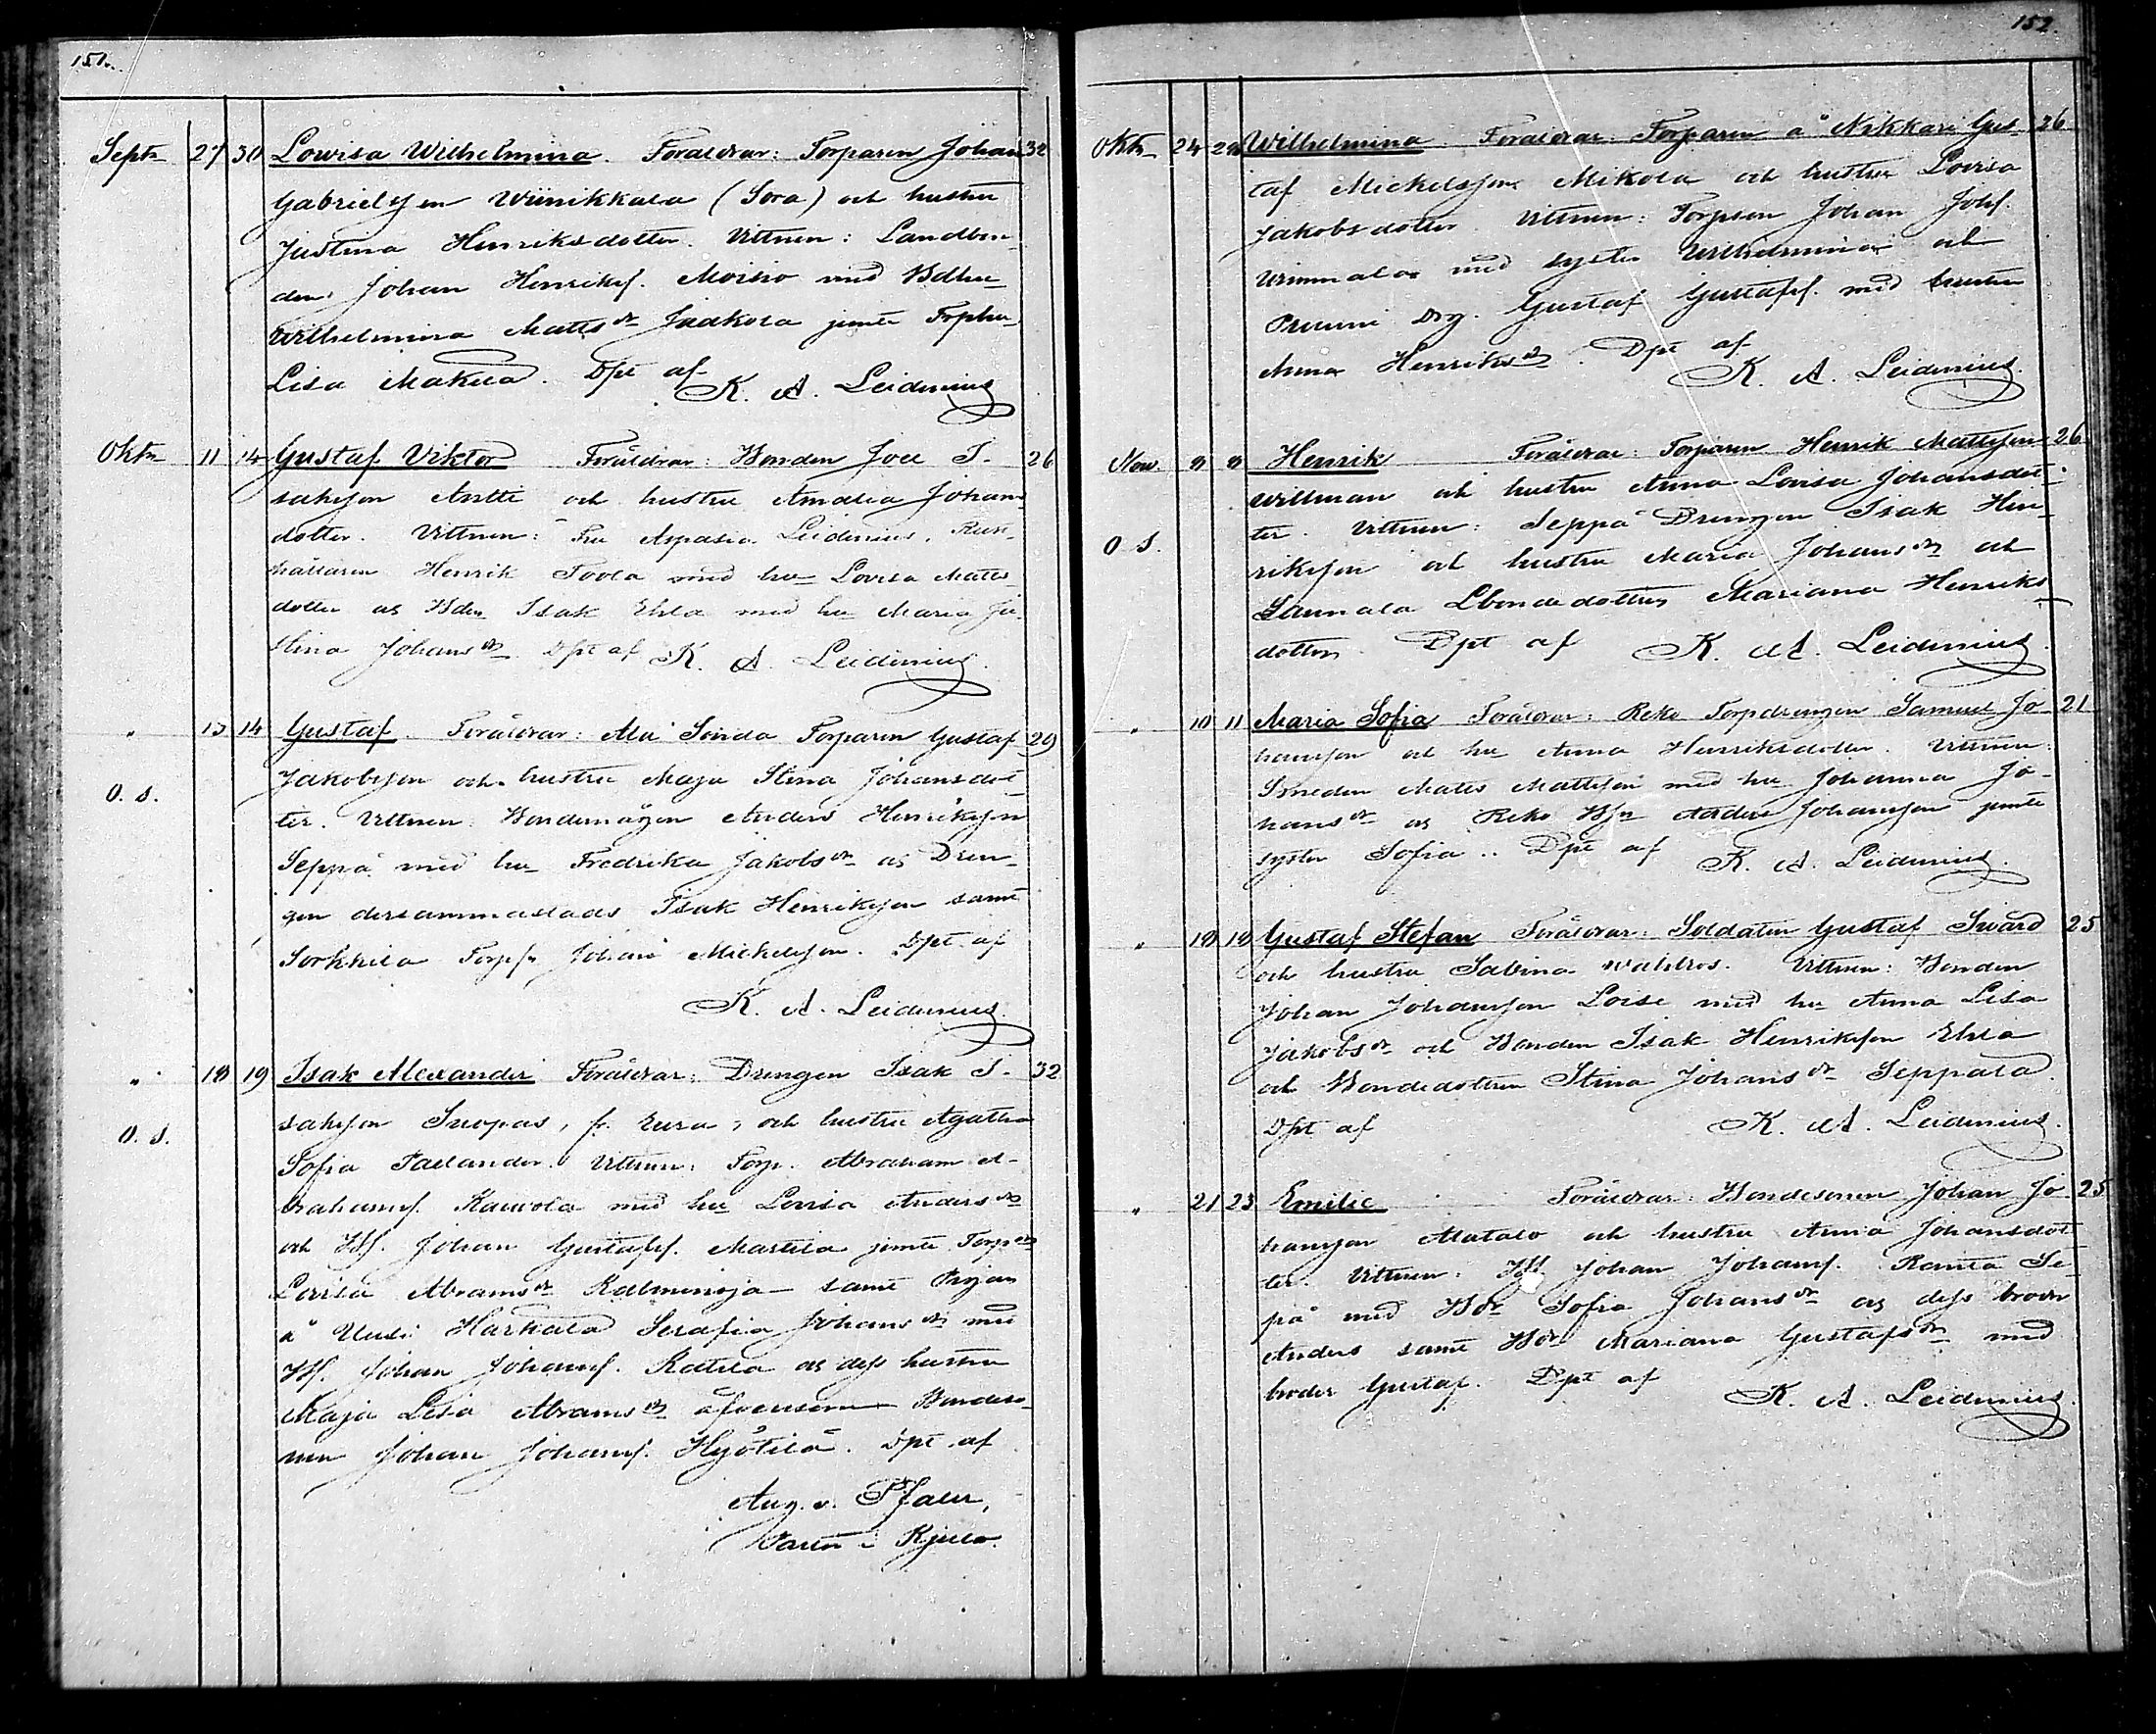 151.
Septr 27 30 Lowisa Wilhelmina. Föräldrar: Torparen Johan 32
Gabrielsson Wiinikkala (Sora) och hustru
Justina Henriksdotter. Vittnen: Landbon-
den Johan Henrikss. Moisio med Bdhu
Wilhelmina Matts dr Jaakola jemte Torphu
Lisa Makila. Dpt af
K. A. Leidenius
Oktr 11 14 Gustaf Viktor Föräldrar: Bonden Joel I- 26
saksson Antti och hustru Amalia Johans
dotter. Vittnen: Fru Aspasia Leidenius, Rust-
hållaren Henrik Toola med hu Lovisa Matts
dotter og Bden Isak Ehla med hu Maria Ju-
stina Johans dr Dpt af K. A. Leidenius.
" 13 14 Gustaf. Föräldrar: Ala Torparen Gustaf 29
O. S.
Jakobsson och hustru Maja Stina Johansdot-
ter. Vittnen: Bondemågen Anders Henriksson
Seppä med hu Fredrika Jakobs dr og Dren-
gen dersammastads Isak Henriksson samt
Sorkkila Torps. Johan Michelsson. Dpt af
K. A. Leidenius.
" 18 19 Isak Alexander Föräldrar: Drengen Isak I- 32
O. S.
saksson Suopas, fr. Eura, och hustru Agatha
Sofia Tallander. Vittnen: Torp. Abraham A-
brahamss. Kauvola med hu Lovisa Anders dr
och Bs. Johan Gustafss. Mattila jemte Torp dr
Lovisa Abrams dr Kalminoja samt Pigan
å Uusi Harkala Serafia Johans dr med
Bs. Johan Johanss. Katila og dess hustru
Maja Lisa Abrams dr äfvensom Bondeso-
nen Johan Johanss. Hyötilä. Dpt af
Aug. v. Pfaler,
Pastor i Kjulo.
152.
Oktr 24 28 Wilhelmina Föräldrar: Torparen å Nikkari Gus- 26
taf Mickelsson Mikola och hustru Lovisa
Jakobsdotter. Vittnen: Torpson Johan Johss.
med syster Wilhelmina och
Drg. Gustaf Gustafss. med hustru
Anna Henriks dr. Dpt af
K. A. Leidenius.
Nov. 8 8 Henrik Föräldrar: Torparen Henrik Mattsson 26
O S.
Willman och hustru Anna Lovisa Johansdot-
ter. Vittnen: Seppä Drengen Isak Hen-
riksson och hustru Maria Johans dr och
Launala Lbondedottren Mariana Henriks-
dotter. Dpt af K. A. Leidenius.
" 10 11 Maria Sofia Föräldrar: Reko Torpdrengen Samuel Jo- 21
hansson och hu Anna Henriksdotter. Vittnen:
Smeden Matts Mattsson med hu Johanna Jo-
hans dr og Reko Bsn Anders Johansson jemte
syster Sofia.. Dpt af K. A. Leidenius.
" 18 18 Gustaf Stefan Föräldrar: Soldaten Gustaf Svärd 25
och hustru Sabina Wahlros. Vittnen: Bonden
Johan Johansson Loisi med hu Anna Lisa
Jakobs dr och Bonden Isak Henriksson Ehla
och Bondedottren Stina Johans dr Seppälä.
Dpt af K. A. Leidenius.
" 21 23 Emilie Föräldrar: Bondesonen Johan Jo- 25
hansson Alatalo och hustru Anna Johansdot-
ter. Vittnen: Bs Johan Johanss. Ranta Se-
pä med Bdr Sofia Johans dr og dess broder
Anders samt Bdr Mariana Gustafs dr med
broder Gustaf. Dpt af
K. A. Leidenius.